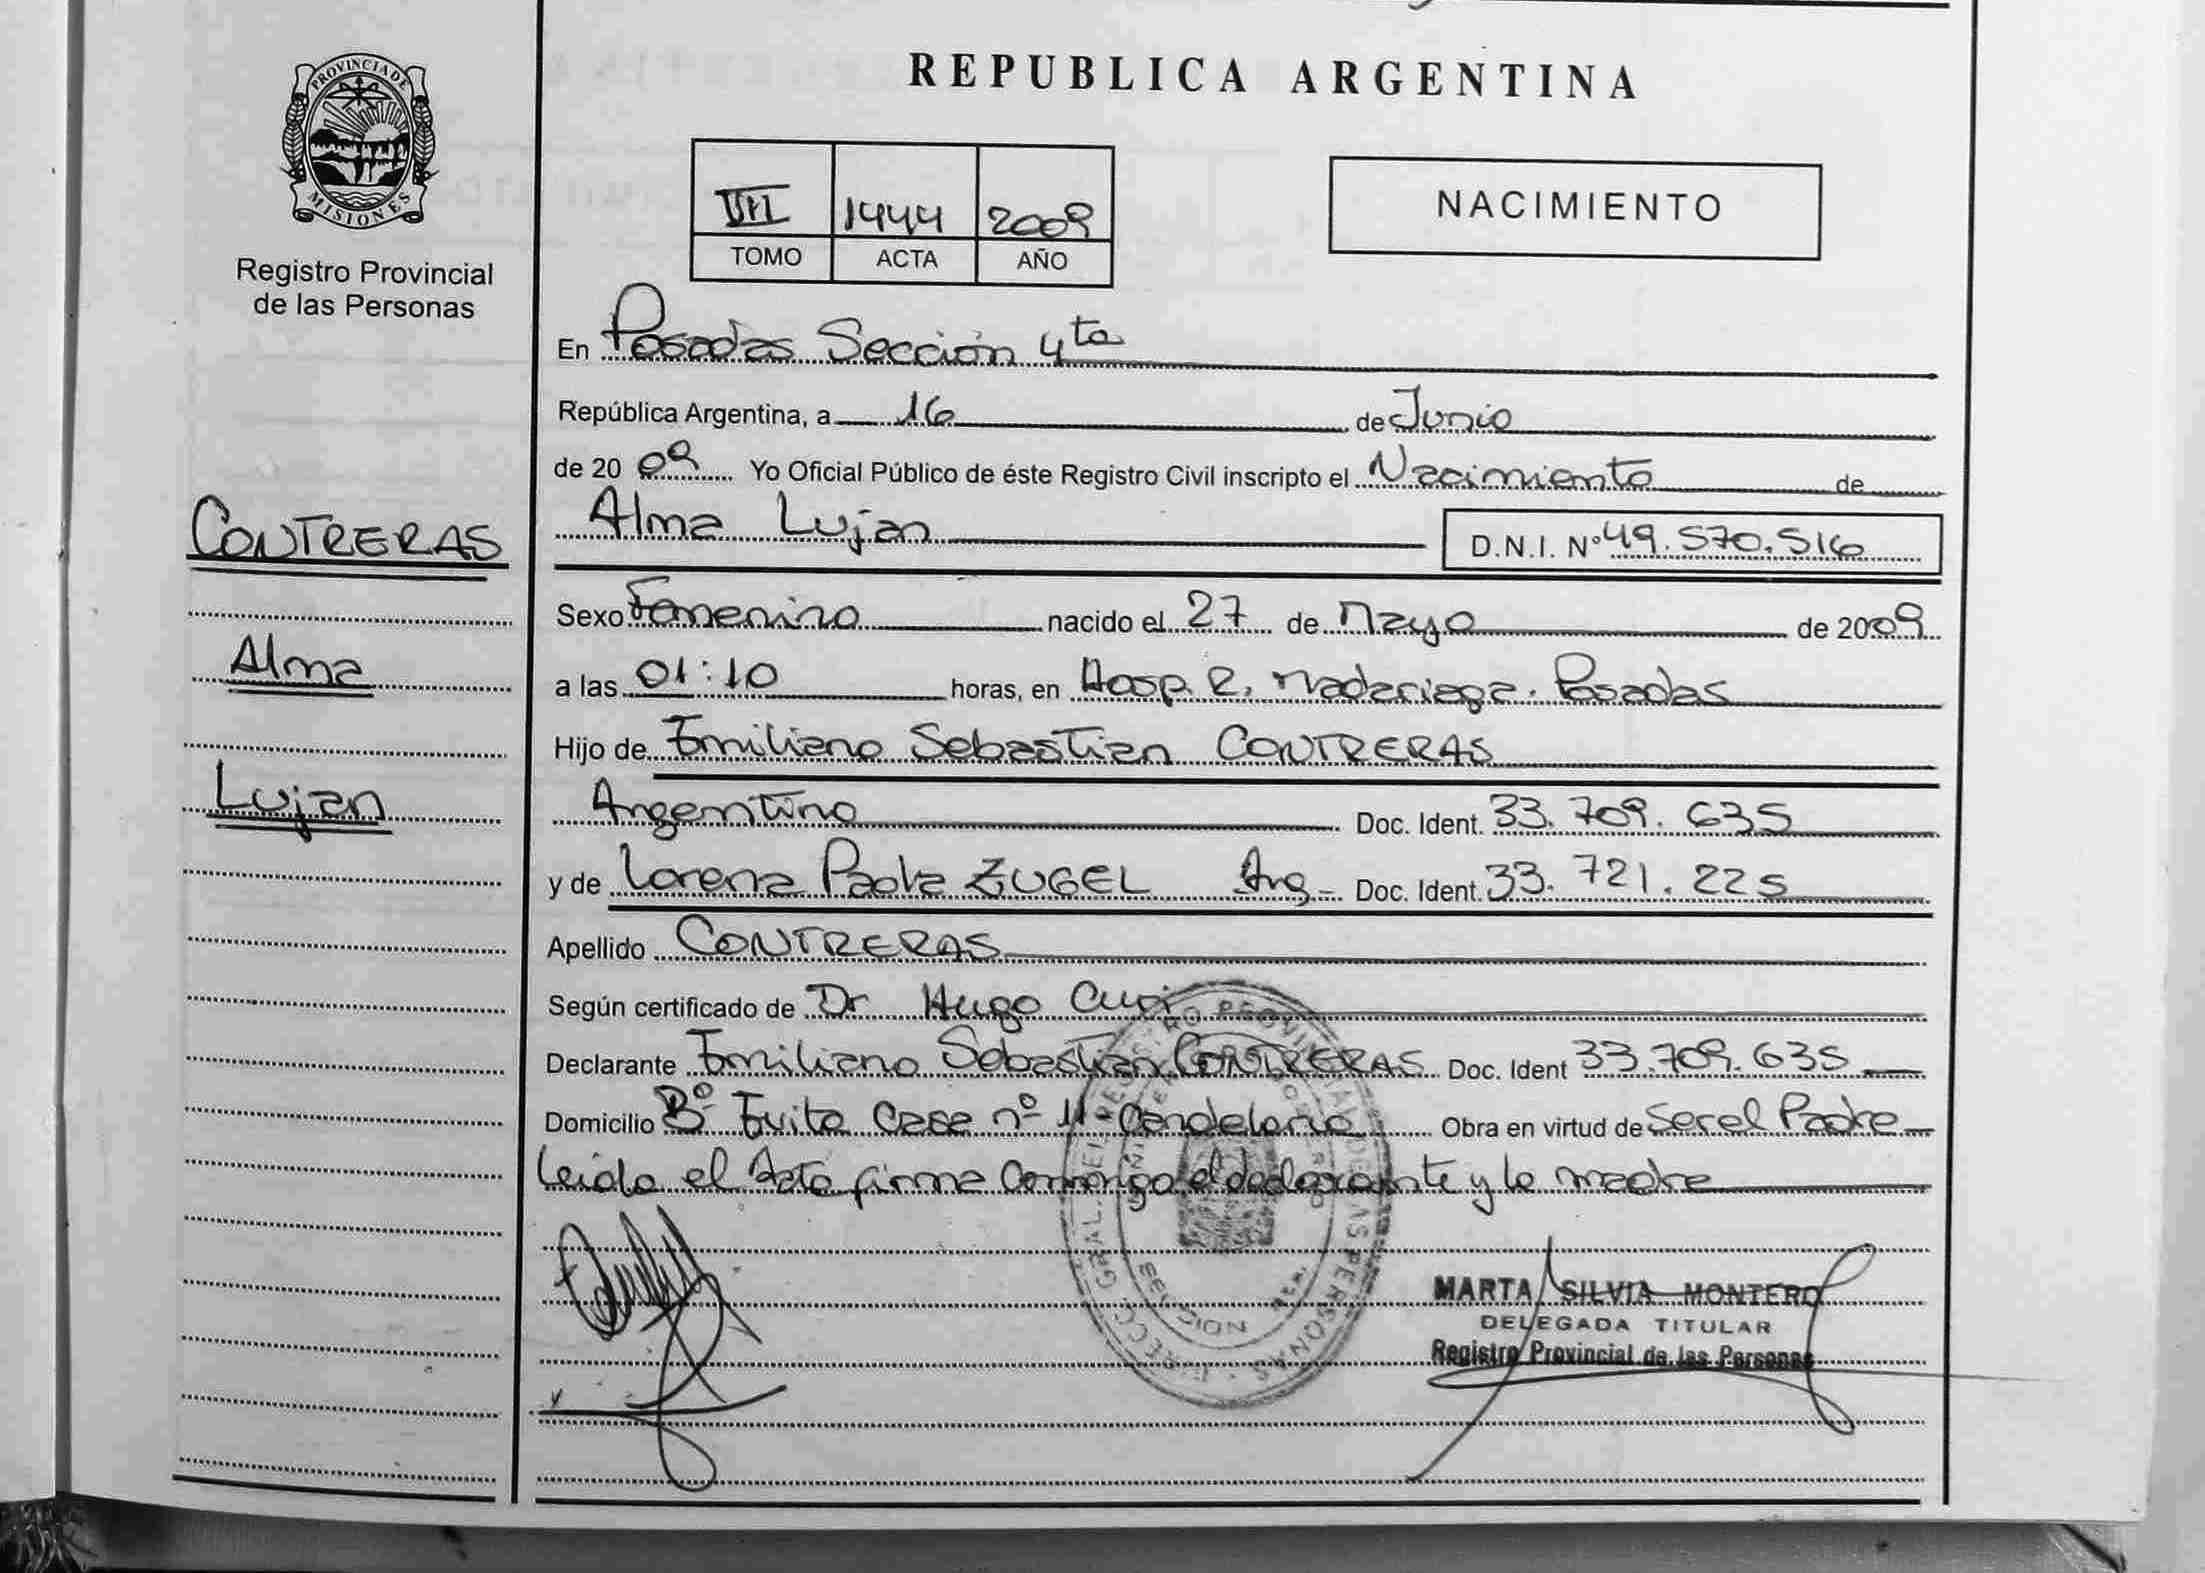 REPUBLICA ARGENTINA
PROVINCIA DE
MISIONES
Registro Provincial
de las Personas
VIII 1444 2009
TOMO ACTA AÑO
NACIMIENTO
En Posadas Sección 4ta
República Argentina, a 16 de Junio
de 2009 Yo Oficial Público de éste Registro Civil inscripto el Nacimiento de
CONTRERAS
Alma Lujan D.N.I. Nº 49.570.516
Sexo Femenino nacido el 27 de Mayo de 2009
Alma
a las 01:10 horas, en Hosp. R. Madariaga. Posadas
Hijo de Emiliano Sebastian CONTRERAS
Lujan
Argentino Doc. Ident. 33.709.635
y de Lorena Paola ZUGEL Arg. Doc. Ident. 33.721.225
Apellido CONTRERAS
Según certificado de Dr Hugo Curi
Declarante Emiliano Sebastian CONTRERAS Doc. Ident 33.709.635
Domicilio Bº Evita Casa nº 11 - Candelaria Obra en virtud de Ser el Padre
Leida el Acta firma conmigo el declarante y la madre
MARTA SILVIA MONTERO
DELEGADA TITULAR
Registro Provincial de las Personas